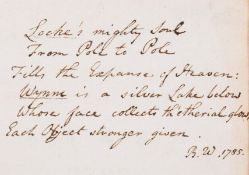 Locke's mighty Soul
From Pole to Pole
Fills the Expanse of Heaven:
Wynne is a silver Lake below
Whose face collects th'etherial glow,
Each Object stronger given.
B. W. 1785.